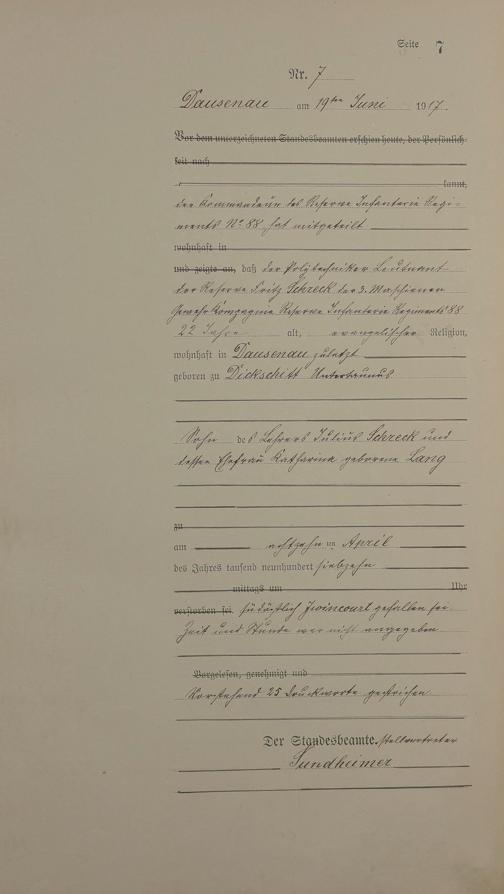 Seite 7
Nr. 7
Dausenau am 19ten Juni 1917.
Vor dem unterzeichneten Standesbeamten erschien heute, der Persönlich-
keit nach
kannt,
der Kommandeur des Reserve Infanterie Regi-
ments No 88 hat mitgeteilt
wohnhaft in
und zeigte an, daß der Polytechniker Leutnant
der Reserve Fritz Schreck der 3. Maschienen
Gewehr Kompagnie Reserve Infanterie Regiments 88
22 Jahre alt, evangelischer Religion,
wohnhaft in Dausenau zuletzt
geboren zu Dickschitt Untertaunus
Sohn des Lehrers Julius Schreck und
dessen Ehefrau Katharina geborene Lang
zu
am achtzehn ten April
des Jahres tausend neunhundert siebzehn
mittags um Uhr
verstorben sei. südöstlich gefallen sei
Zeit und Stunde war nicht angegeben
Vorgelesen, genehmigt und
Vorstehend 25 Druckworte gestrichen
Der Standesbeamte. stellvertreter
Sundheimer